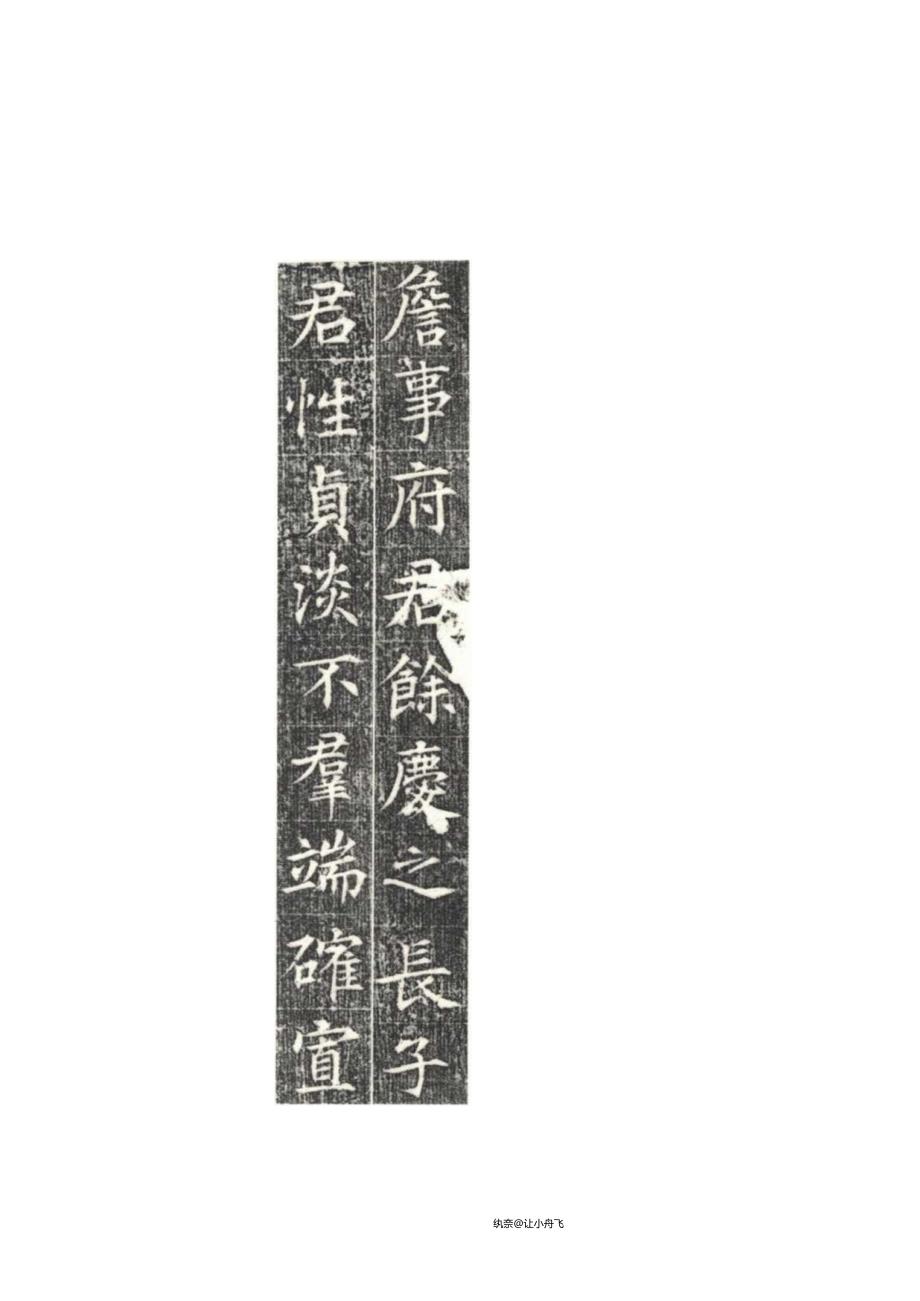 詹事府君餘慶之長子
君性貞淡不羣端確宣
纨奈@让小舟飞